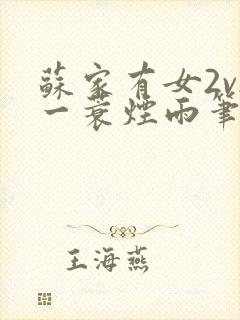 蘇家有女2v
一蓑煙雨筆
王海燕